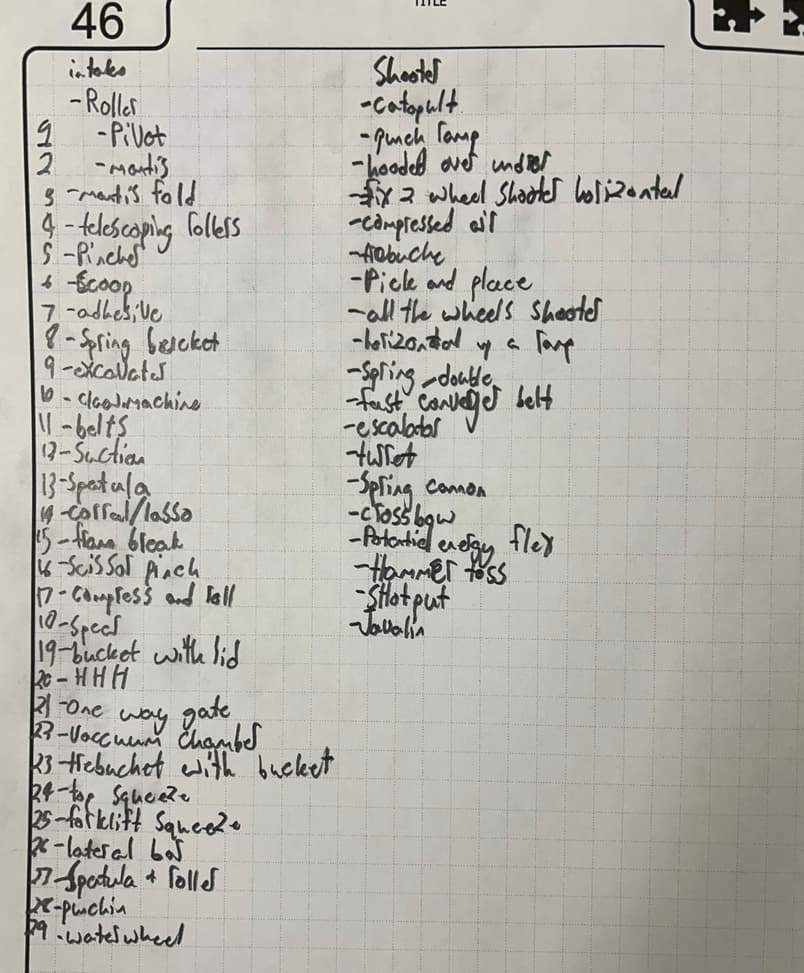 TITLE
46
intakes
-Roller
1 -Pivot
2 -mantis
3 -mantis fold
4 -telescoping rollers
5 -Pincher
6 -Scoop
7 -adhesive
8 -Spring bracket
9 -excavator
10 -claw machine
11 -belts
12 -Suction
13 -Spatula
14 -corral/lasso
15 -break
16 -Scissor pinch
17 -Compress and roll
18 -Spear
19 -bucket with lid
20 -HHH
21 -one way gate
22 -Vaccuum chamber
23 -trebuchet with bucket
24 -top squeeze
25 -forklift squeeze
26 -lateral bar
27 -Spatula + roller
28 -punchin
29 -water wheel
Shooter
-Catapult
-punch ramp
-hooded over under
-fix 2 wheel shooter horizontal
-compressed air
-trebuche
-Pick and place
-all the wheels shooter
-horizontal up a ramp
-Spring, double
-fast conveyer belt
-escalator
-turret
-Spring cannon
-crossbow
-Potential energy flex
-Hammer toss
-SHotput
-Javalin